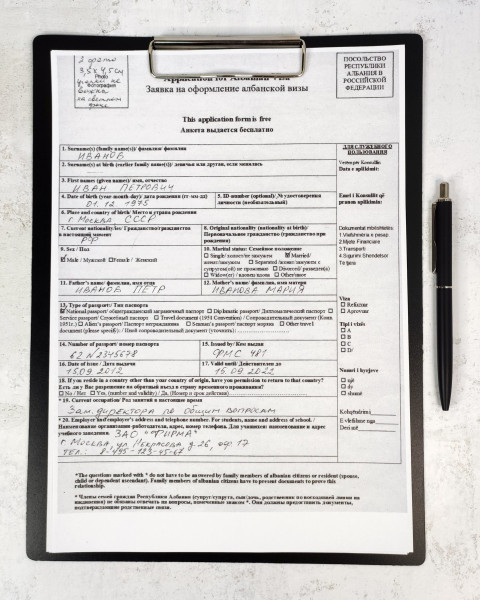 2 фото
3,5 x 4,5 см
Photo
Фотография
на светлом
фоне
ПОСОЛЬСТВО
РЕСПУБЛИКИ
АЛБАНИЯ В
РОССИЙСКОЙ
ФЕДЕРАЦИИ
Application for Albanian Visa
Заявка на оформление албанской визы
This application form is free
Анкета выдается бесплатно
1. Surname(s) (family name(s))/ фамилия/ фамилии
ИВАНОВ
2. Surname(s) at birth (earlier family name(s))/ девичья или другая, если менялась
3. First names (given names)/ имя, отчество
ИВАН ПЕТРОВИЧ
4. Date of birth (year-month-day)/ дата рождения (гг-мм-дд)
01. 12. 1975
5. ID number (optional)/ № удостоверения
личности (необязательный)
6. Place and country of birth/ Место и страна рождения
г. Москва СССР
7. Current nationality/ies/ Гражданство/гражданства
в настоящий момент
РФ
8. Original nationality (nationality at birth)/
Первоначальное гражданство (гражданство при
рождении)
9. Sex / Пол
Male / Мужской Female / Женский
10. Marital status/ Семейное положение
Single/ холост/не замужем Married/
женат/замужем Separated /женат/замужем с
супругом(ой) не проживаю Divorced/ разведен(а)
Widow(er) / вдовец/ вдова Other/иное
11. Father's name/ фамилия, имя отца
ИВАНОВ ПЕТР
12. Mother's name/ фамилия, имя матери
ИВАНОВА МАРИЯ
13. Type of passport/ Тип паспорта
National passport/ общегражданский заграничный паспорт Diplomatic passport/ Дипломатический паспорт
Service passport/ Служебный паспорт Travel document (1951 Convention) / Сопроводительный документ (Конв.
1951г.) Alien's passport/ Паспорт иностранца Seaman's passport/ паспорт моряка Other travel
document (please specify)/ Иной сопроводительный документ (уточнить)
14. Number of passport/ номер паспорта
62 N2345678
15. Issued by/ Кем выдан
ФМС 481
16. Date of issue / Дата выдачи
15.09.2012
17. Valid until/ Действителен до
15.09.2022
18. If you reside in a country other than your country of origin, have you permission to return to that country?
Есть ли у Вас разрешение на обратный въезд в страну временного проживания?
No / Нет Yes, (number and validity) / Да, (Номер и срок действия)
* 19. Current occupation/ Род занятий в настоящее время
Зам. директора по общим вопросам
* 20. Employer and employer's address and telephone number. For students, name and address of school /
Наименование организации-работодателя, адрес, номер телефона. Для учащихся наименование и адрес
учебного заведения.
ЗАО "ФИРМА"
г. Москва, ул. Некрасова д. 26, оф. 17
тел.: 8-495-123-45-67
*The questions marked with * do not have to be answered by family members of albanian citizens or resident (spouse,
child or dependent ascendant). Family members of albanian citizens have to present documents to prove this
relationship.
* Члены семей граждан Республики Албания (супруг/супруга, сын/дочь, родственник по восходящей линии на
иждивении) не обязаны отвечать на вопросы, помеченные знаком *. Они должны предоставить документы,
подтверждающие родственные связи.
ДЛЯ СЛУЖЕБНОГО
ПОЛЬЗОВАНИЯ
Data e aplikimit:
pranon aplikimin:
Dokumentat mbështetëse:
3.Transport
Visa
Refuzuar
Aprovuar
Tipi i vizës:
A
B
C
D/
Numri i hyrjeve
një
dy
shumë
Kohëqëndrimi
E vlefshme nga
Deri më